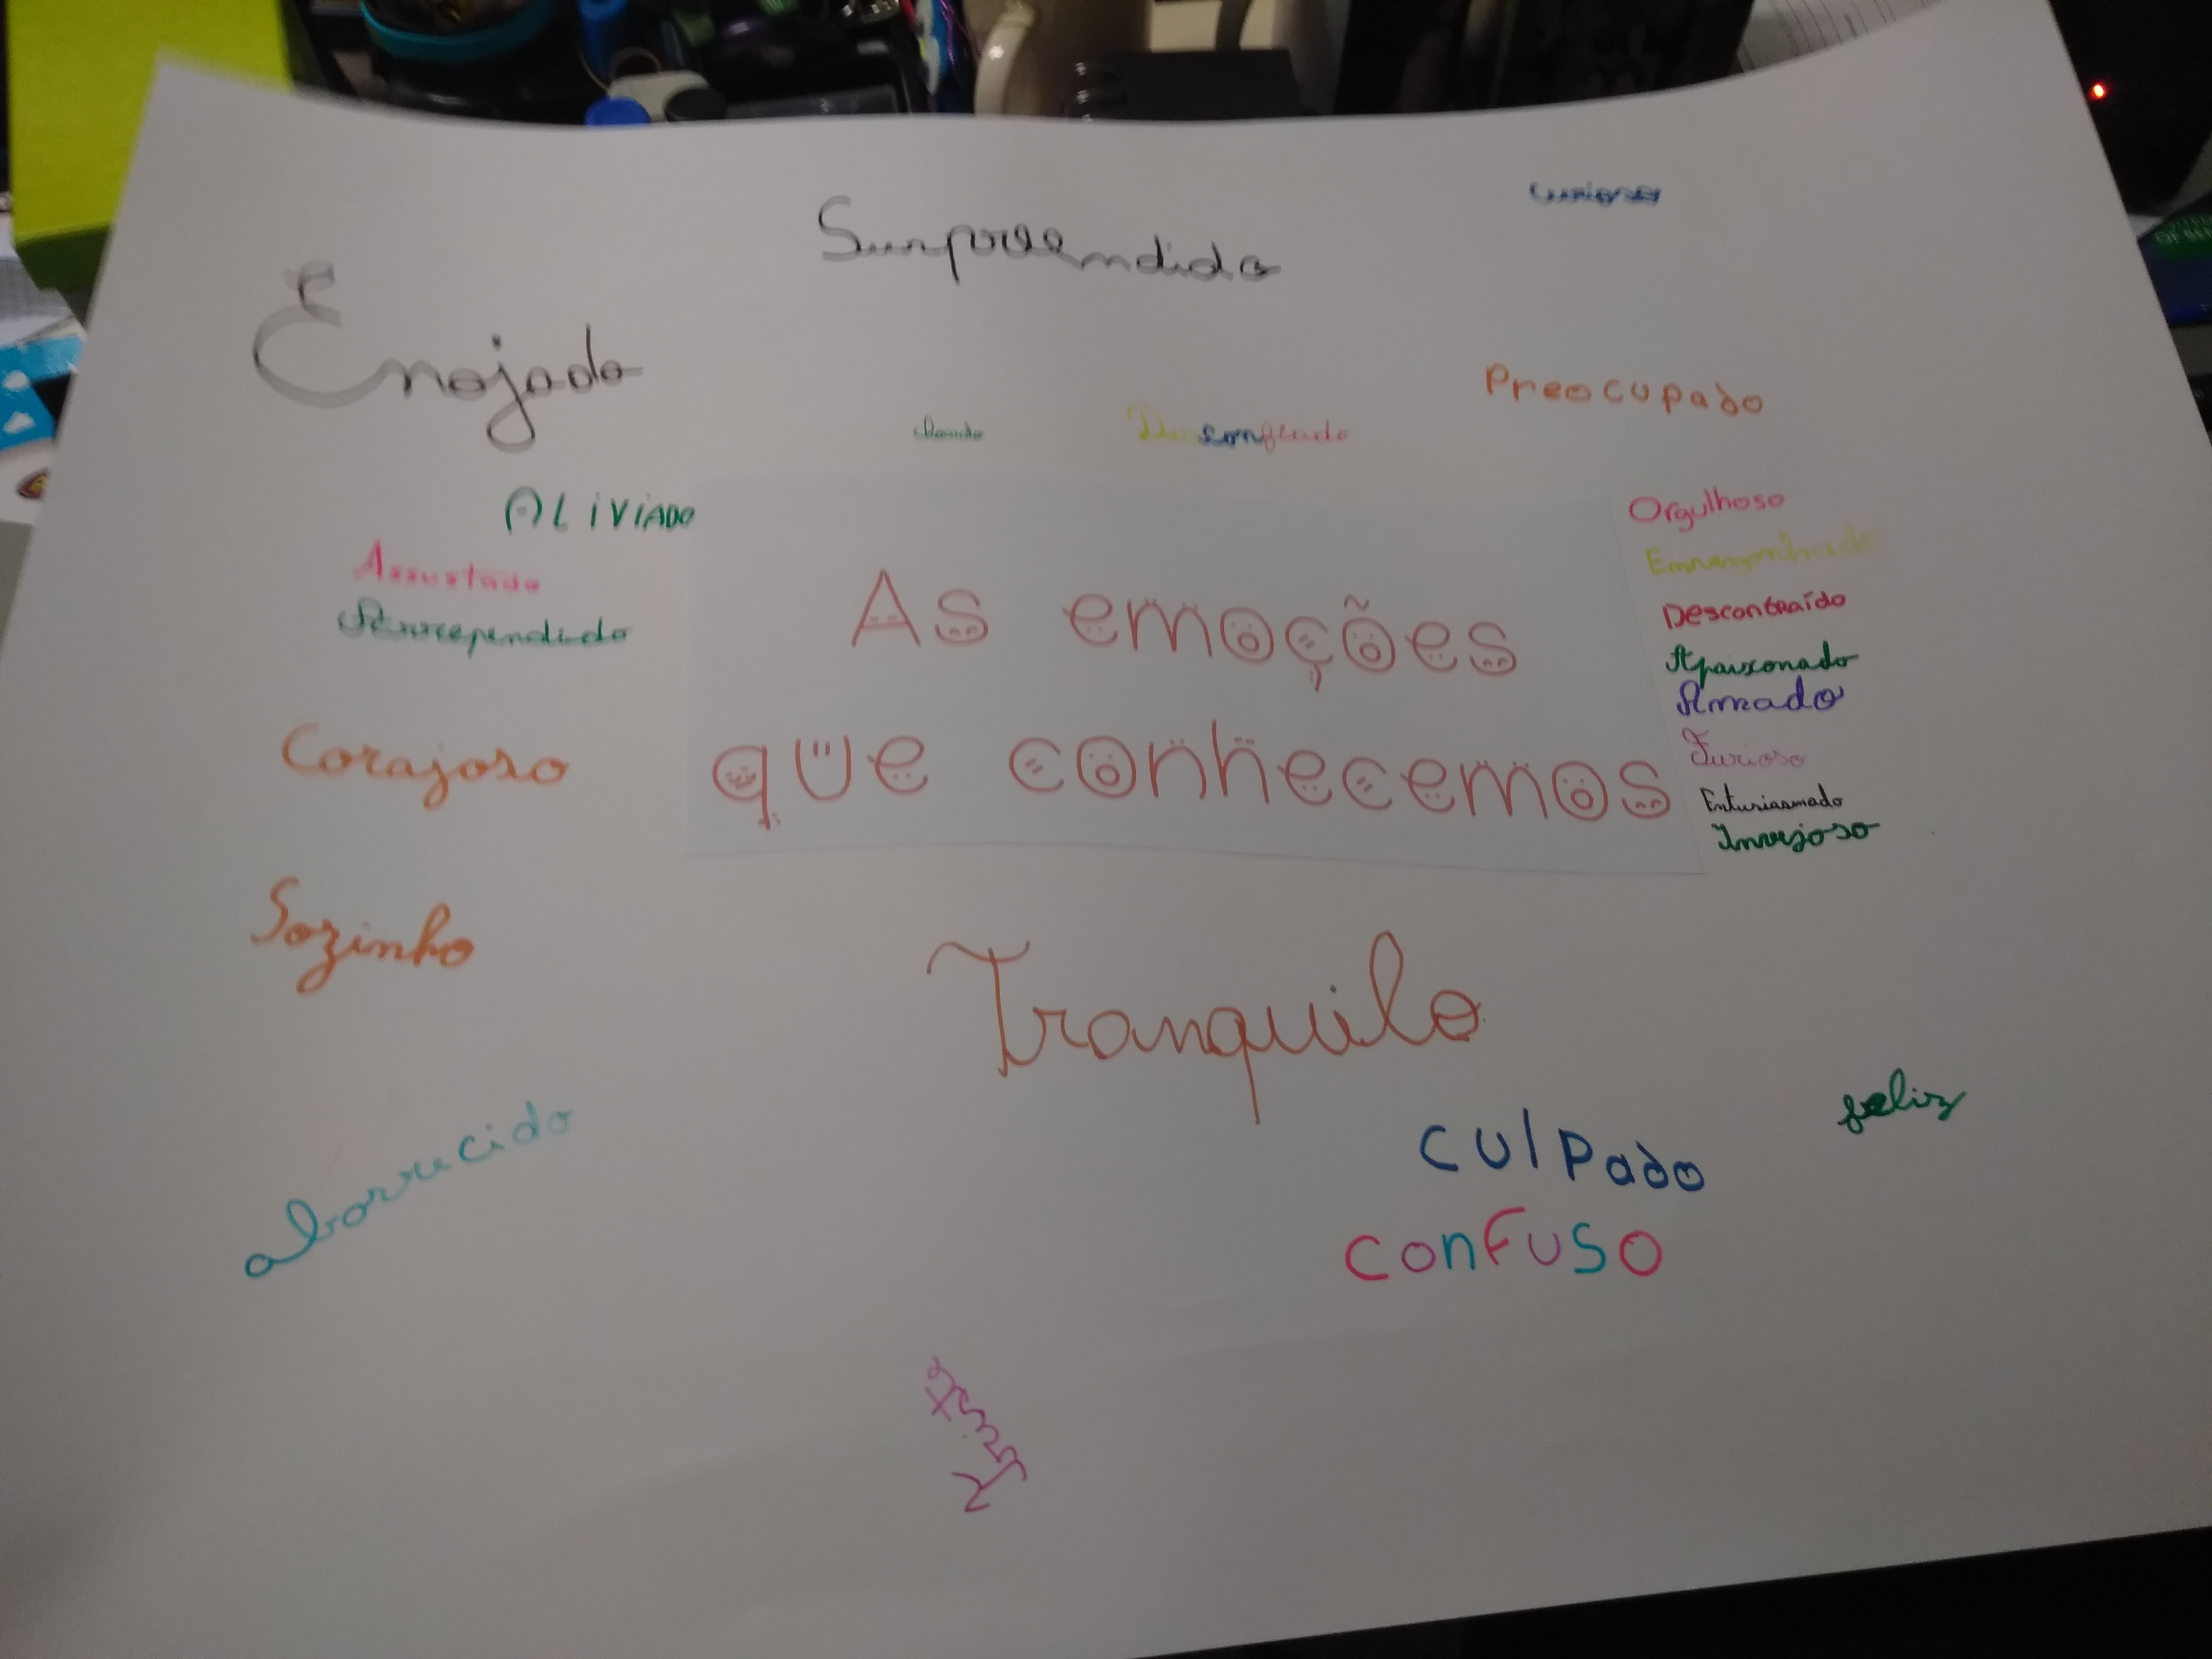 Surpreendido
Enojado
Preocupado
Desconfiado
ALiViADO
Orgulhoso
Assustado
Envergonhado
Arrependido
Descontraído
As emoções
Apaixonado
Amado
que conhecemos
Corajoso
Furioso
Entusiasmado
Invejoso
Sozinho
Tranquilo
feliz
culpado
aborrecido
confuso